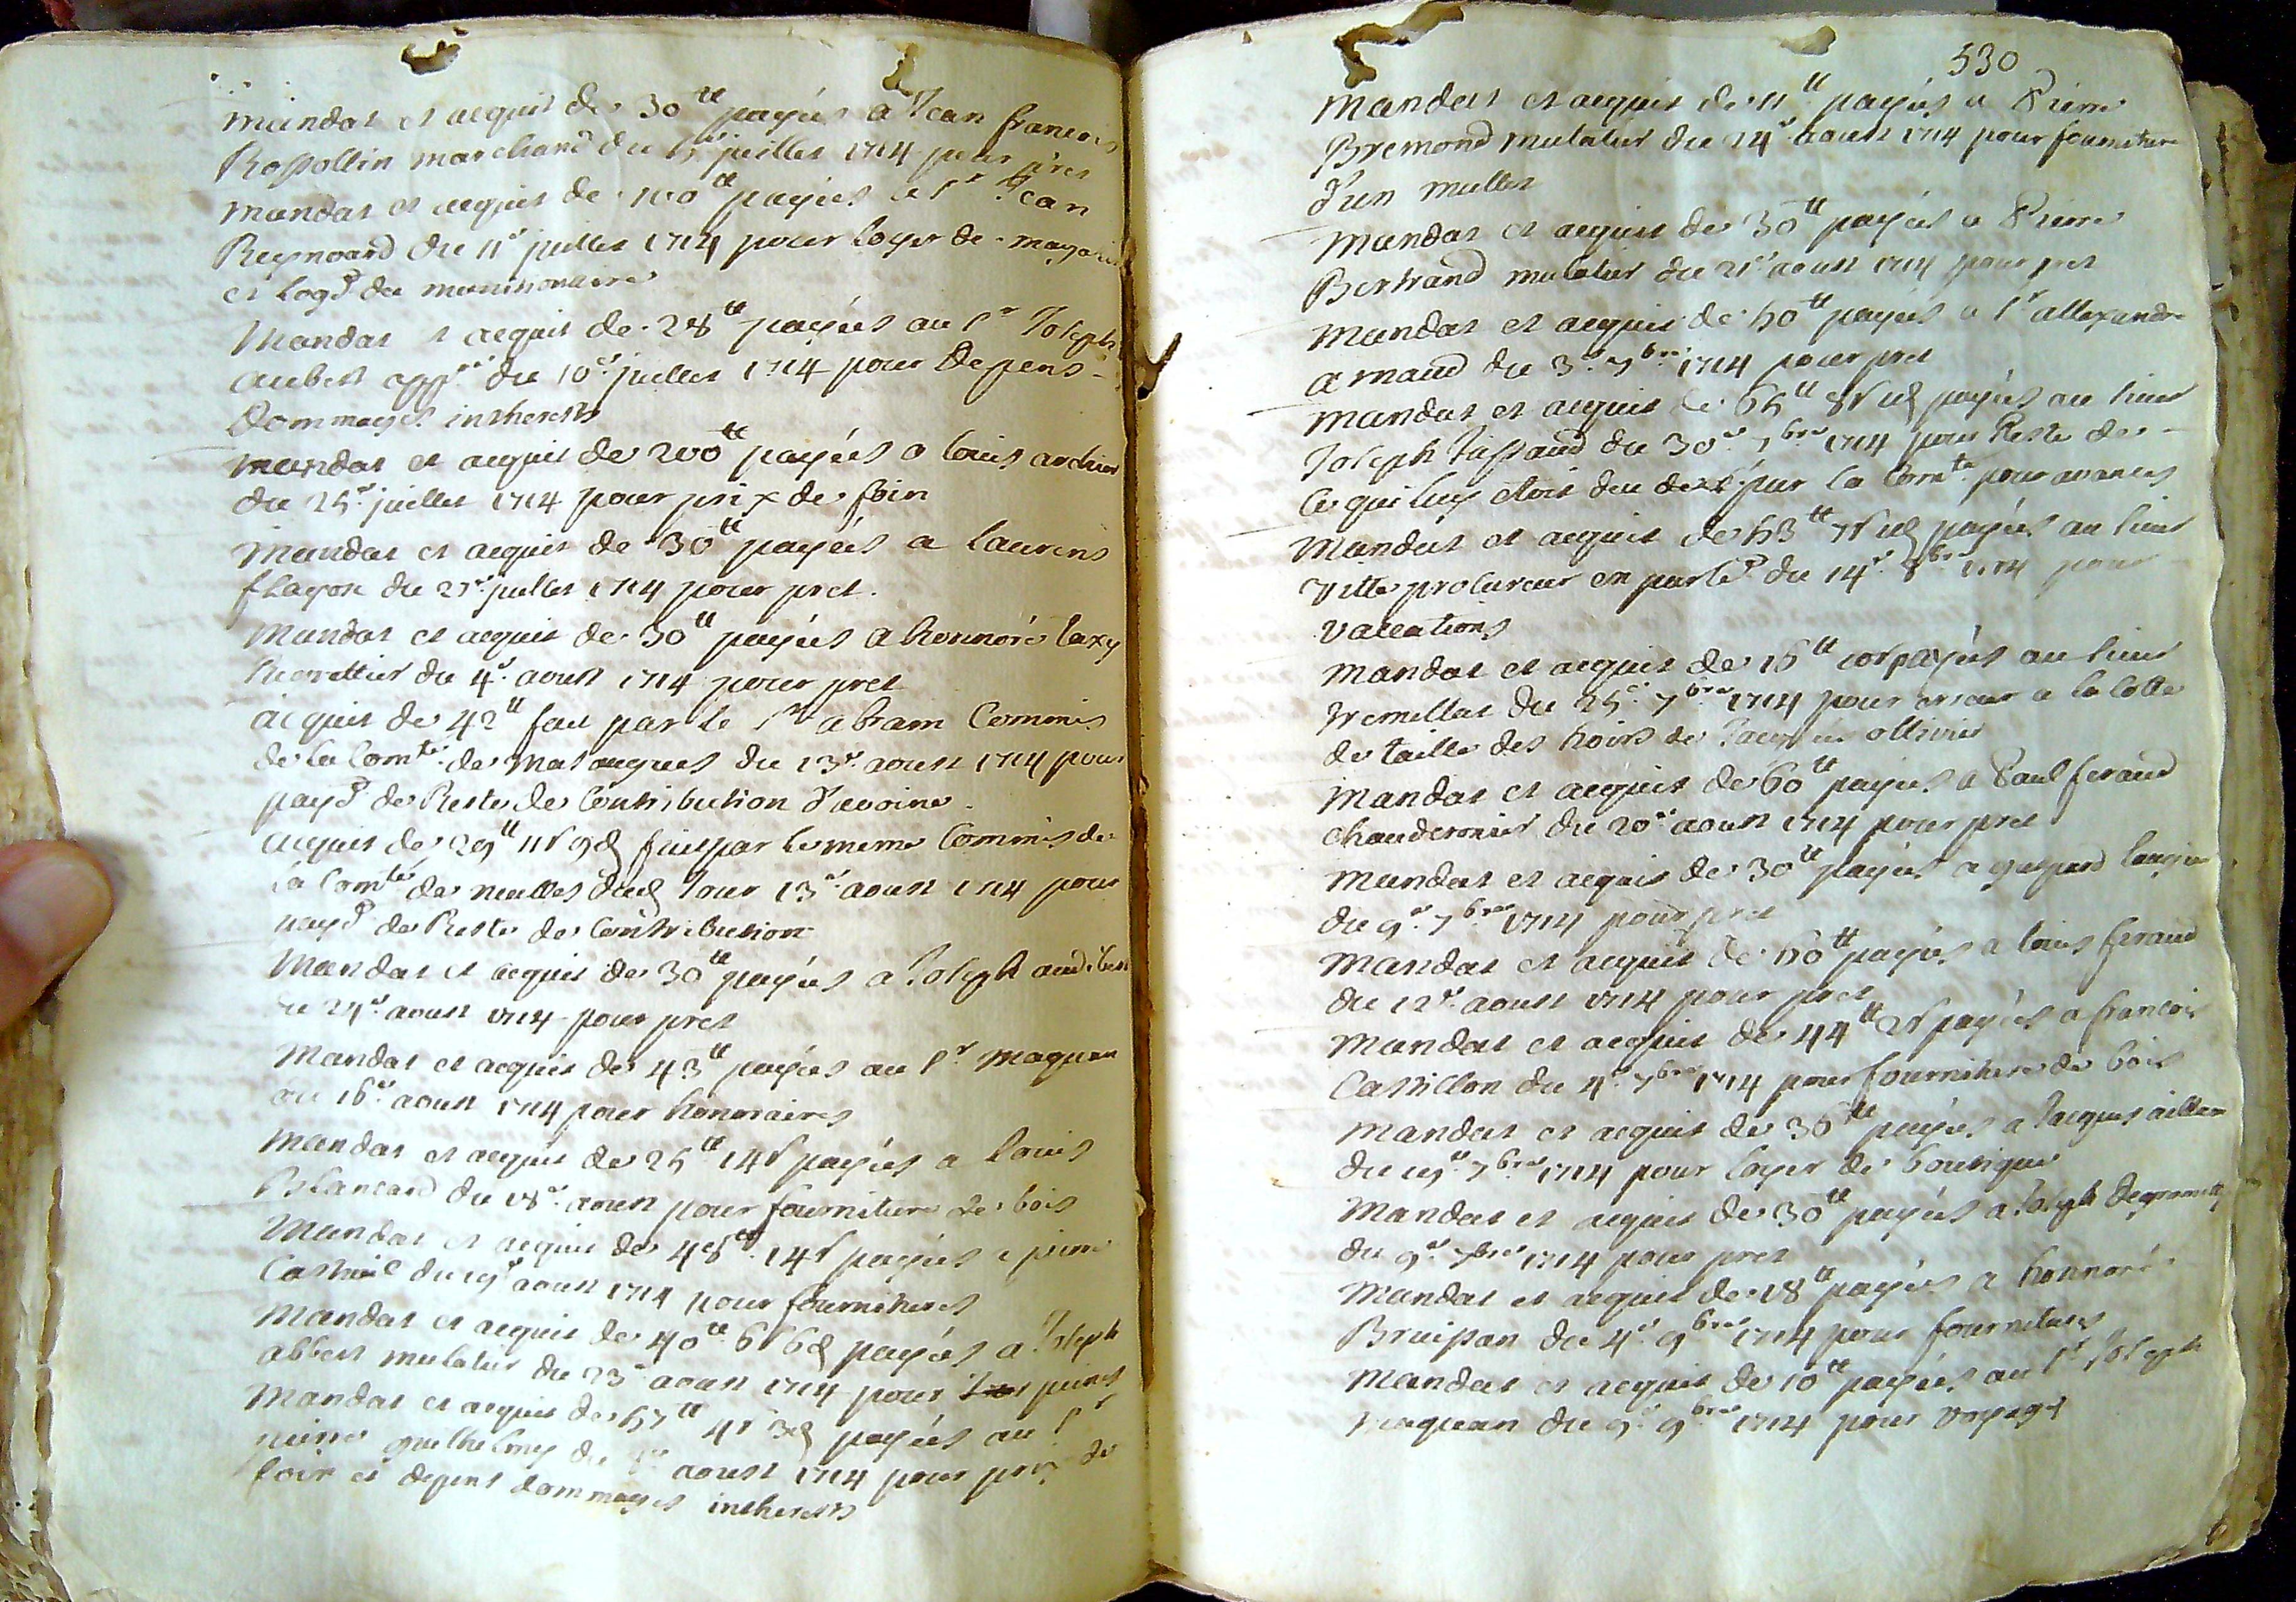 Mandat et acquit de 30ᵗᵗ payées a Jean francois
Rossollin marchand du juillet 1714 pour pret
Mandat et acquit de 100ᵗᵗ payées a sʳ Jean
Reynoard du 11ᵉ juillet 1714 pour loyer de magasin
et logᵗ du munitionnaire
Mandat et acquit de 28ᵗᵗ payées au sʳ Joseph
aubert du 10ᵉ juillet 1714 pour Depens
Dommages intherests
Mandat et acquit de 200ᵗᵗ payées a louis archier
du 25ᵉ juillet 1714 pour prix de foin
Mandat et acquit de 30ᵗᵗ payées a laurens
flayosc du 21ᵉ juillet 1714 pour pret.
Mandat et acquit de 30ᵗᵗ payées a honnoré taxy
du 4ᵉ aoust 1714 pour pret
acquit de 42ᵗᵗ fait par le sʳ abram Commis
de la Comᵗᵉ de du 13ᵉ aoust 1714 pour
payᵗ de Reste de Contribution d'avoine
acquit de 29ᵗᵗ 11s 9d fait par le meme Commis de
la Comᵗᵉ de dud Jour 13ᵉ aoust 1714 pour
payᵗ de Reste de Contribution
Mandat et acquit de 30ᵗᵗ payées a Joseph audibert
du 24ᵉ aoust 1714 pour pret
Mandat et acquit de 43ᵗᵗ payées au sʳ maquan
du 16ᵉ aoust 1714 pour honnoraires
Mandat et acquit de 25ᵗᵗ 14s payées a louis
Blancard du 18ᵉ aoust pour fourniture de bois
Mandat et acquit de 48ᵗᵗ 14s payées a pierre
du 19ᵉ aoust 1714 pour fournitures
Mandat et acquit de 40ᵗᵗ 6s 6d payées a Joseph
abbert mulatier du 23ᵉ aoust 1714 pour peines
Mandat et acquit de 57ᵗᵗ 4s 3d payées au sʳ
pierre du aoust 1714 pour prix de
foin et depens dommages intherests
530
Mandat et acquit de 11ᵗᵗ payées a Pierre
Bremond mulatier du 24ᵉ aoust 1714 pour fourniture
d'un mullet
Mandat et acquit de 30ᵗᵗ payées a Pierre
Bertrand mulatier du 21ᵉ aoust 1714 pour pret
Mandat et acquit de 50ᵗᵗ payées a sʳ allexandre
arnaud du 3ᵉ 7ᵇʳᵉ 1714 pour pret
Mandat et acquit de 65ᵗᵗ payées au sieur
Joseph du 30ᵉ 7ᵇʳᵉ 1714 pour Reste de
ce qui luy etoit deu par la Comᵗᵉ pour avances
Mandat et acquit de 53ᵗᵗ payées au sieur
vitte procureur en parlᵗ du 14ᵉ 8ᵇʳᵉ 1714 pour
vaccations
Mandat et acquit de 16ᵗᵗ 10s payées au sieur
du 25ᵉ 7ᵇʳᵉ 1714 pour erreur a la cotte
de taille des hoirs de Jacques ollivier
Mandat et acquit de 60ᵗᵗ payées a Paul feraud
chauderonier du 20ᵉ aoust 1714 pour pret
Mandat et acquit de 30ᵗᵗ payées a gaspard laugier
du 9ᵉ 7ᵇʳᵉ 1714 pour pret
Mandat et acquit de 60ᵗᵗ payées a louis feraud
du 12ᵉ aoust 1714 pour pret
Mandat et acquit de 44ᵗᵗ 2s payées a francois
Castillon du 4ᵉ 7ᵇʳᵉ 1714 pour fourniture de bois
Mandat et acquit de 36ᵗᵗ payées a Jacques
du 19ᵉ 7ᵇʳᵉ 1714 pour loyer de boutique
Mandat et acquit de 30ᵗᵗ payées a Joseph
du 9ᵉ 7ᵇʳᵉ 1714 pour pret
Mandat et acquit de 18ᵗᵗ payées a honnoré
du 4ᵉ 9ᵇʳᵉ 1714 pour fournitures
Mandat et acquit de 10ᵗᵗ payées au sʳ Joseph
maquan du 9ᵉ 9ᵇʳᵉ 1714 pour voyages